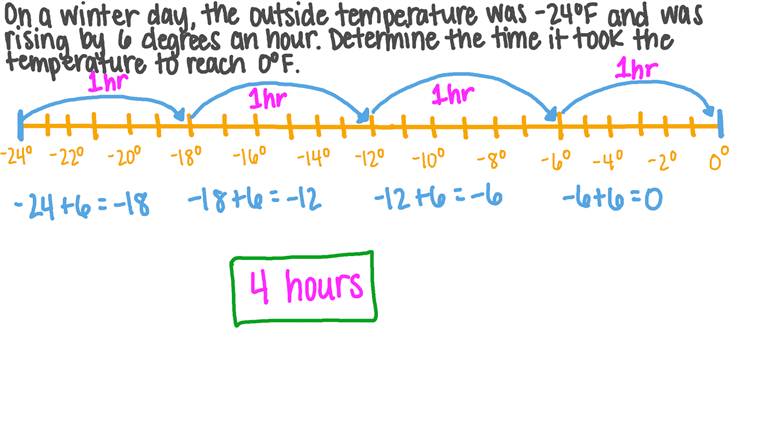 On a winter day, the outside temperature was -24°F and was
rising by 6 degrees an hour. Determine the time it took the
temperature to reach 0°F.
1hr 1hr 1hr 1hr
-24° -22° -20° -18° -16° -14° -12° -10° -8° -6° -4° -2° 0°
-24+6=-18 -18+6=-12 -12+6=-6 -6+6=0
4 hours